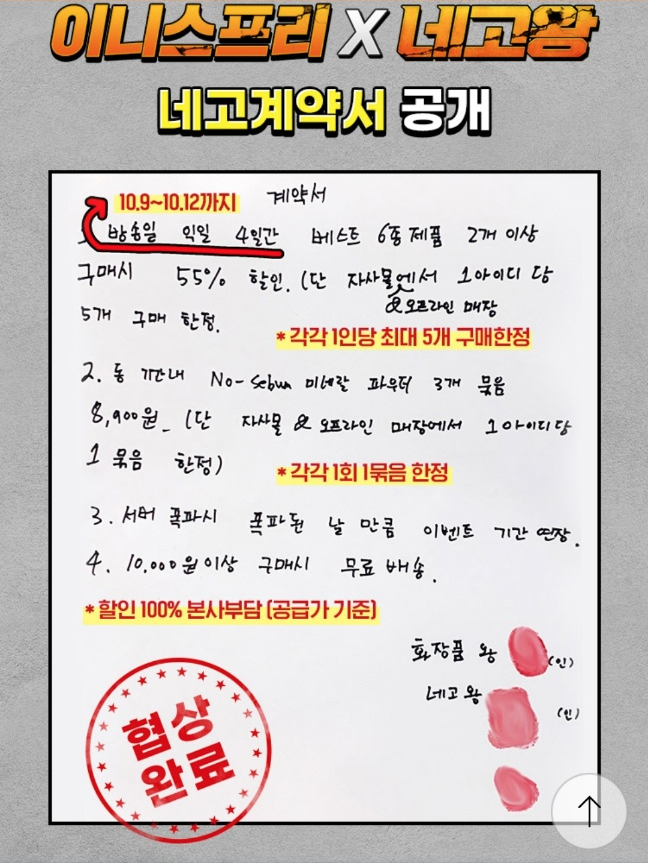 이니스프리 X 네고왕
네고계약서 공개
10.9~10.12까지
계약서
1. 방송일 익일 4일간 베스트 6종 제품 2개 이상
구매시 55% 할인. (단 자사몰에서 1아이디 당
& 오프라인 매장
5개 구매 한정.
*각각 1인당 최대 5개 구매한정
2. 동 기간내 No-Sebum 미네랄 파우더 3개 묶음
8,900원_ (단 자사몰 & 오프라인 매장에서 1아이디당
1 묶음 한정)
*각각 1회 1묶음 한정
3. 서버 폭파시 폭파된 날 만큼 이벤트 기간 연장.
4. 10,000원이상 구매시 무료 배송.
*할인 100% 본사부담 (공급가 기준)
화장품 왕 (인)
네고왕 (인)
협상
완료